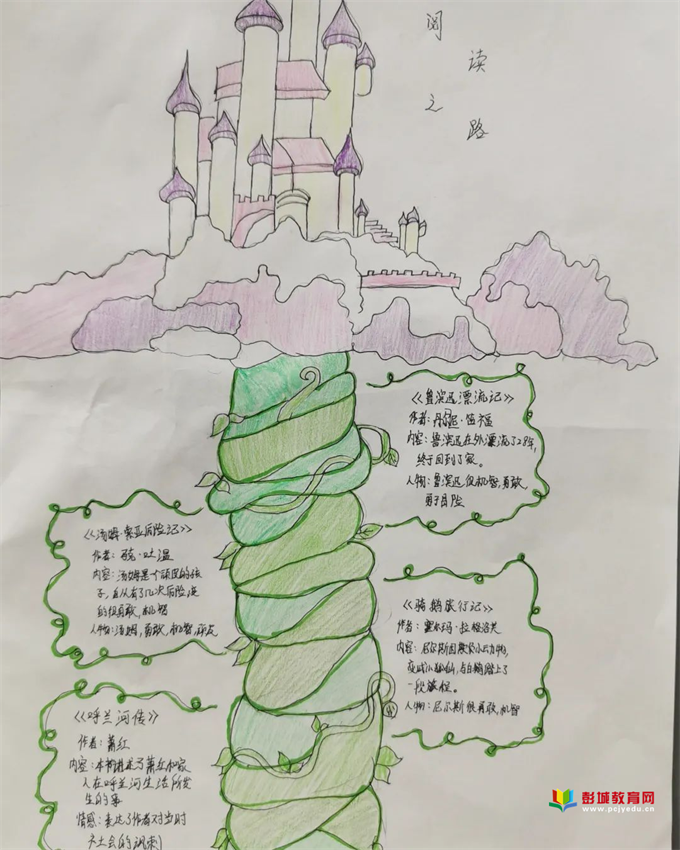 阅读之路
《鲁滨逊漂流记》
作者：丹尼尔·笛福
内容：鲁滨逊在外漂流了28年，
终于回到了家。
人物：鲁滨逊很机智，勇敢
勇于冒险
《汤姆·索亚历险记》
作者：马克·吐温
内容：汤姆是个顽皮的孩
子，自从有了几次历险，变
的很勇敢，机智
人物：汤姆，勇敢，机智，顽皮
《骑鹅旅行记》
作者：塞尔玛·拉格洛夫
内容：尼尔斯因欺负小动物，
变成小狐仙，与白鹅踏上了
一段旅程。
人物：尼尔斯很勇敢，机智
《呼兰河传》
作者：萧红
内容：本书描述了萧红和家
人在呼兰河生活所发
生的事
情感：表达了作者对当时
社会的讽刺
彭城教育网
www.pcjyedu.cn